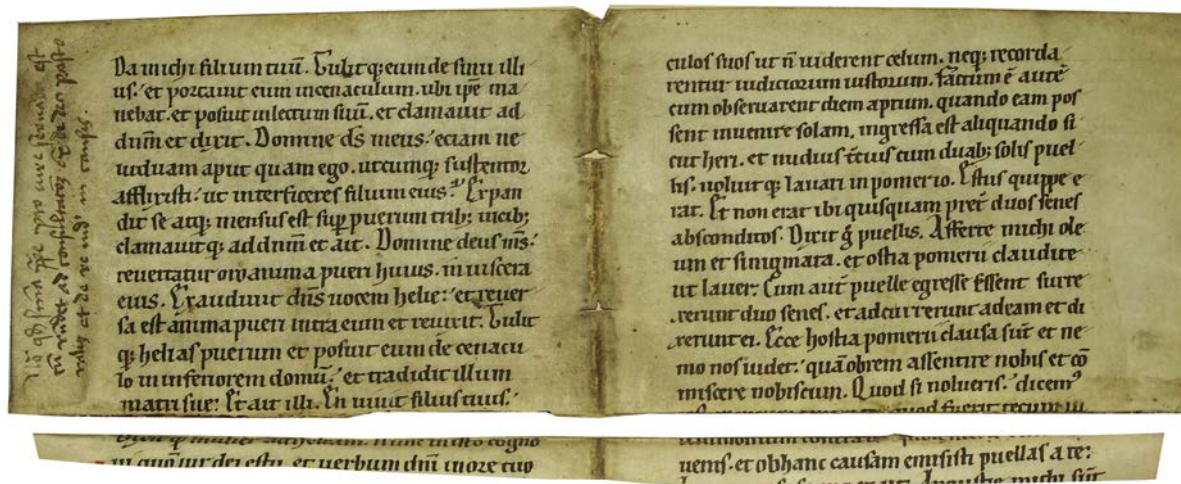 Da michi filium tuū. Tulit q; eum de sinu illi
us. et portauit eum incenaculum. ubi ipē ma
nebat. et posuit inlectum suū. et clamauit ad
dn̄m et dixit. Domine ds̄ meus. eciam ne
uiduam aput quam ego. utcumq; sustentor
afflixisti. ut interficeres filium eius. Expan
dit se atq; mensus est sup̄ puerum trib; uicib;
clamauit q; ad dn̄m et ait. Domine deus ms̄.
reuertatur oro anima pueri huius. in uiscera
eius. Exaudiuit dn̄s uocem helie. et reuer
sa est anima pueri intra eum et reuixit. Tulit
q; helias puerum et posuit eum de cenacu
lo in inferiorem domū. et tradidit illum
matri sue. Et ait illi. En uiuit filius tuus.
mulier ad heliam. nunc in isto cogno
ui quō uir dei es tu. et uerbum dn̄i inore tuo
culos suos ut n̄ uiderent celum. neq; recorda
rentur iudiciorum iustorum. factum ē autē
cum obseruarent diem aptum. quando eam pos
sent inuenire solam. ingressa est aliquando si
cut heri. et nudius t̄cius cum duab; solis puel
lis. uoluit q; lauari in pomerio. Estus quippe e
rat. Et non erat ibi quisquam pret̄ duos senes
absconditos. Dixit g̊ puellis. Afferte michi ole
um et sinigmata. et ostia pomerii claudite
ut lauer. Cum aut̄ puelle egresse essent surre
xerunt duo senes. et adcurrerunt adeam et di
xerunt ei. Ecce hostia pomerii clausa sūt et ne
mo nos uidet. quāobrem assentire nobis et cō
miscere nobiscum. Quod si nolueris. dicemꝰ
quod fuerit tecum iu
uenis. et obhanc causam emisisti puellas a te.
Angustie michi sūt